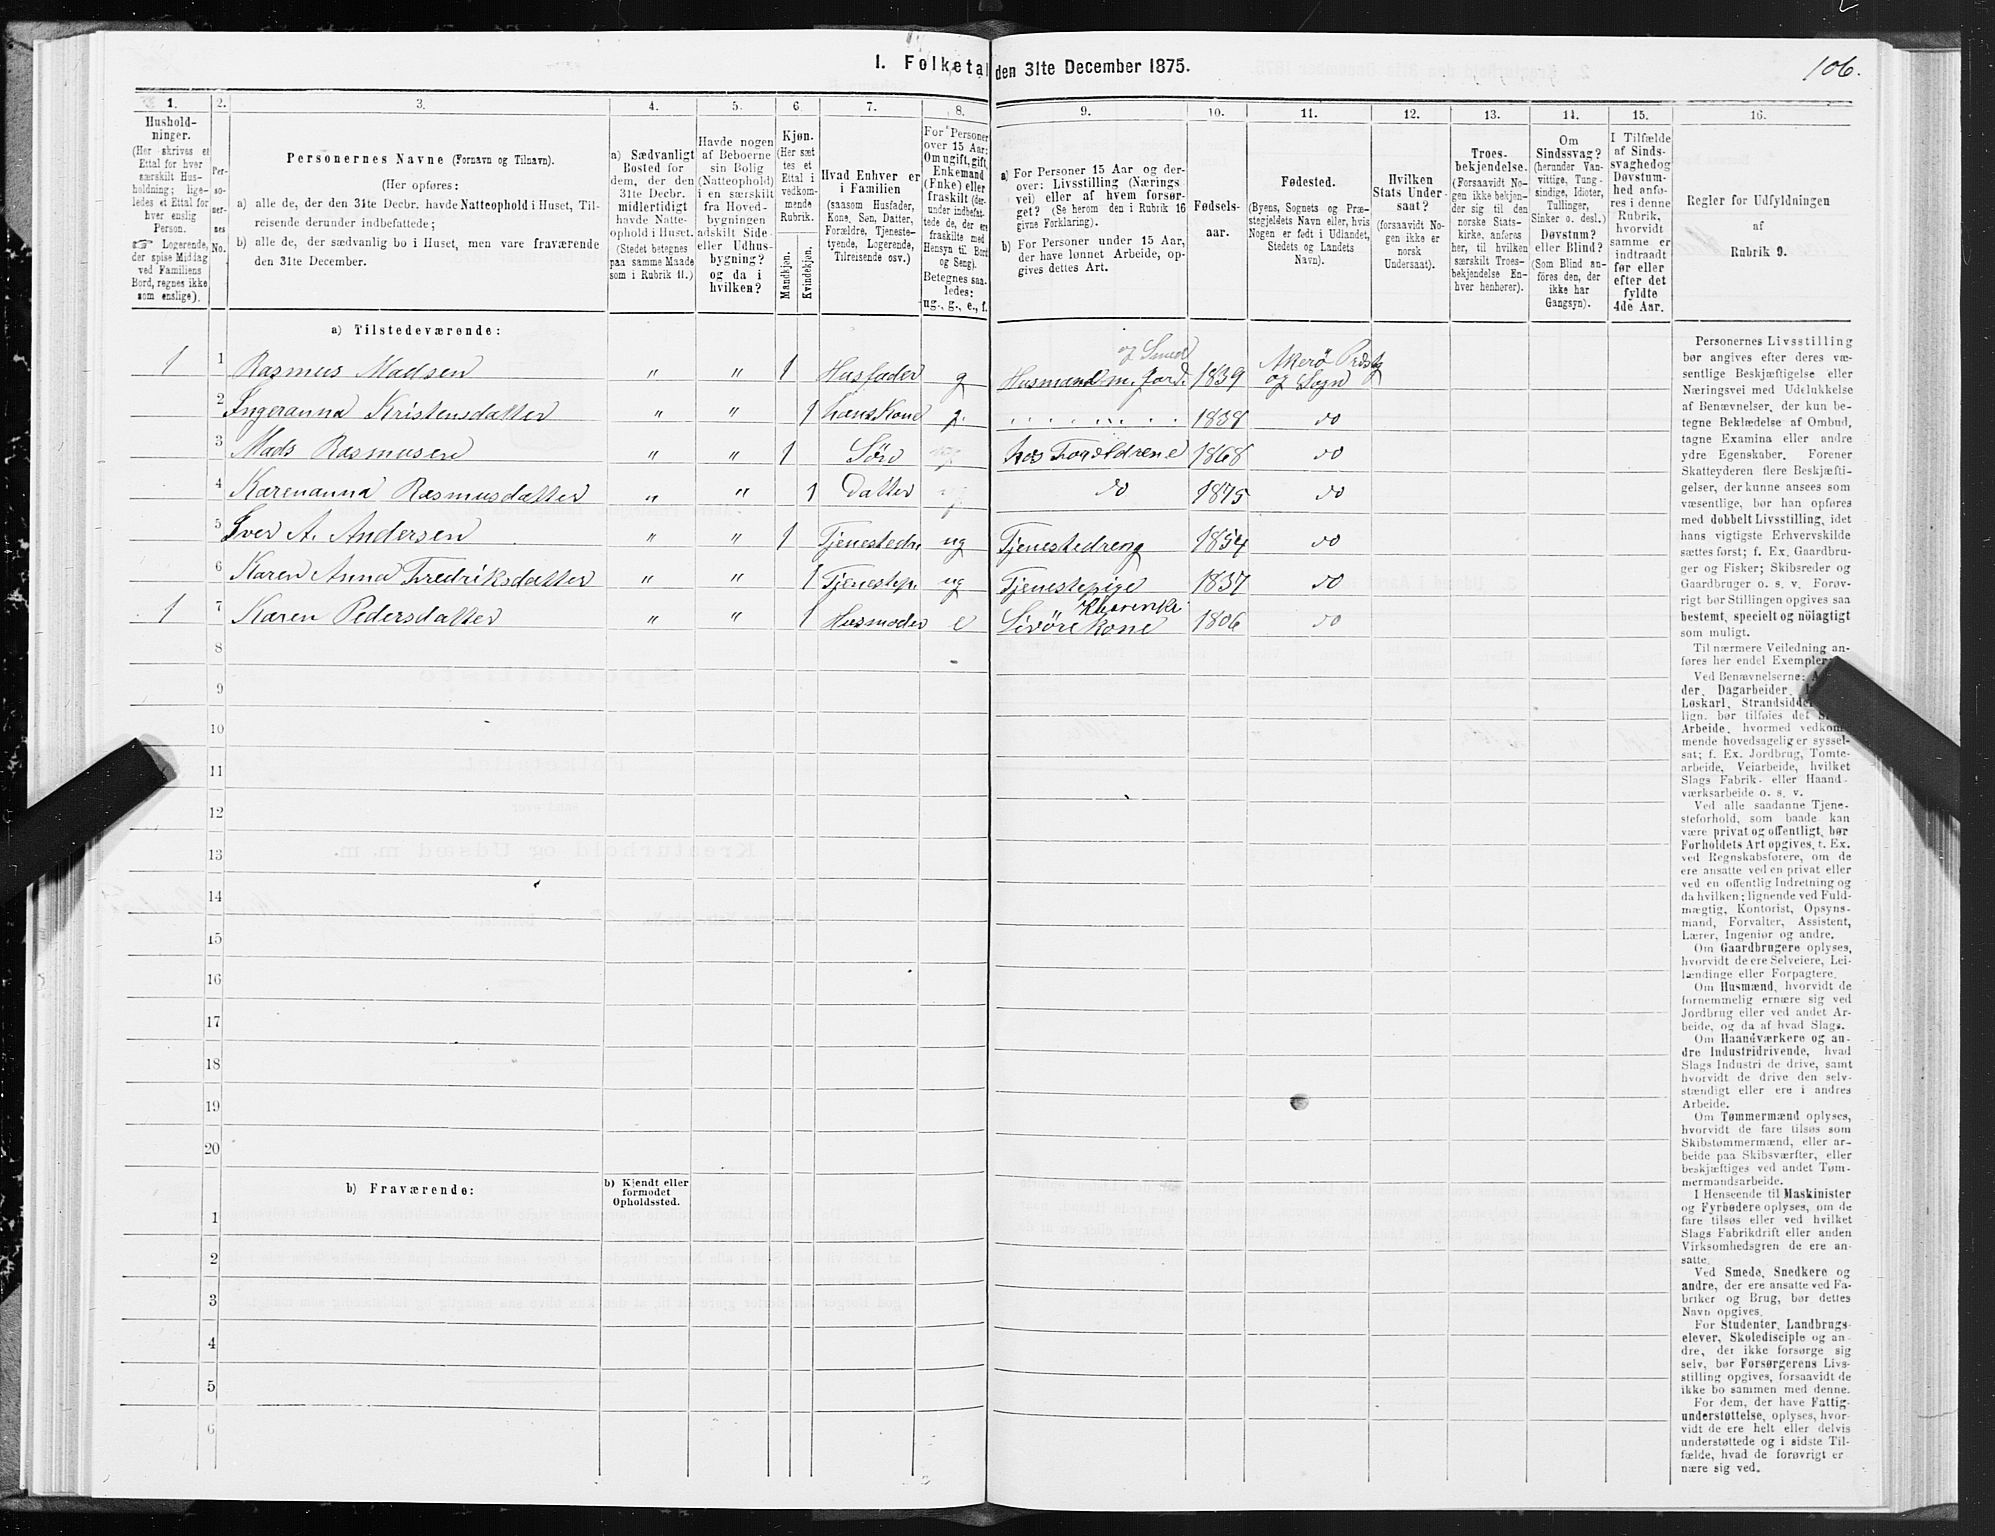 106.
I. Folketal den 31te December 1875.
1.
Hushold-
ninger.
(Her skrives et
Ettal for hver
særskilt Hus-
holdning; lige-
ledes et Ettal for
hver enslig
Person.
☞ Logerende,
der spise Middag
ved Familiens
Bord, regnes ikke
som enslige).
2.
Per-
so-
ner-
nes
No.
3.
Personernes Navne (Fornavn og Tilnavn).
(Her opføres:
a) alle de, der den 31te Decbr. havde Natteophold i Huset, Til-
reisende derunder indbefattede;
b) alle de, der sædvanlig bo i Huset, men vare fraværende
den 31te December.
4.
a) Sædvanligt
Bosted for
dem, der den
31te Decbr.
midlertidigt
havde Natte-
ophold i Huset.
(Stedet betegnes
paa samme Maade
som i Rubrik 11.)
5.
Havde nogen
af Beboerne
sin Bolig
(Natteophold)
i en særskilt
fra Hoved-
bygningen
adskilt Side-
eller Udhus-
bygning?
og da i
hvilken?
6.
Kjøn.
(Her sæt-
tes et
Ettal i
vedkom-
mende
Rubrik.
Mandkjøn.
Kvindekjøn.
7.
Hvad Enhver er
i Familien
(saasom Husfader,
Kone, Søn, Datter,
Forældre, Tjeneste-
tyende, Logerende,
Tilreisende osv.)
8.
For Personer
over 15 Aar:
Om ugift, gift,
Enkemand
(Enke) eller
fraskilt (der-
under indbefat-
tede de, der ere
fraskilte med
Hensyn til Bord
og Seng).
Betegnes saa-
ledes:
ug., g., e., f.
9.
a) For Personer 15 Aar og der-
over: Livsstilling (Nærings-
vei) eller af hvem forsør-
get? (Se herom den i Rubrik 16
givne Forklaring).
b) For Personer under 15 Aar,
der have lønnet Arbeide, op-
gives dettes Art.
10.
Fødsels-
aar.
11.
Fødested.
(Byens, Sognets og Præ-
stegjeldets Navn eller, hvis
Nogen er født i Udlandet,
Stedets og Landets
Navn).
12.
Hvilken
Stats Under-
saat?
(forsaavidt No-
gen ikke er
norsk
Undersaat).
13.
Troes-
bekjendelse.
(Forsaavidt No-
gen ikke bekjen-
der sig til den
norske Stats-
kirke, anføres
her, til hvilken
særskilt Troes-
bekjendelse En-
hver henhører).
14.
Om
Sindssvag?
(herunder Van-
vittige, Tung-
sindige, Idioter,
Tullinger,
Sinker o. desl.)
Døvstum?
eller Blind?
(Som Blind an-
føres den, der
ikke har
Gangsyn).
15.
I Tilfælde
af Sinds-
svaghed og
Døvstum-
hed anfø-
res i denne
Rubrik,
hvorvidt
samme er
indtraadt
før eller
efter det
fyldte
4de Aar.
16.
Regler for Udfyldningen
af
Rubrik 9.
a) Tilstedeværende:
1 1 Rasmus Madsen " " 1 Husfader g Husmand m. Jord. og Smed 1839 Akerö Prdstg og Sogn
2 Ingeranna Kristensdatter " " 1 hans Kone g. 1838 do
3 Mads Rasmusen " " 1 Sön hos Foreldrene 1868 do
4 Karenanna Rasmusdatter " " 1 Datter do 1875 do
5 Iver A. Andersen " " 1 Tjenestedr. ug Tjenestedreng 1854 do
6 Karen Anna Fredriksdatter " " 1 Tjenestep. ug Tjenestepige 1837 do
1 7 Karen Pedersdatter " " 1 Husmoder e Kone 1806 do
8
9
10
11
12
13
14
15
16
17
18
19
20
b) Fraværende:
b) Kjendt eller
formodet
Opholdssted.
1
2
3
4
5
6
Personernes Livsstilling
bør angives efter deres væ-
sentlige Beskjæftigelse eller
Næringsvei med Udelukkelse
af Benævnelser, der kun be-
tegne Beklædelse af Ombud,
tagne Examina eller andre
ydre Egenskaber. Forener
Skatteyderen flere Beskjæfti-
gelser, der kunne ansees som
væsentlige, bør han opføres
med dobbelt Livsstilling, idet
hans vigtigste Erhvervskilde
sættes først; f. Ex. Gaardbru-
ger og Fisker; Skibsreder og
Gaardbruger o. s. v. Forøv-
rigt bør Stillingen opgives saa
bestemt, specielt og nöiagtigt
som muligt.
Til nærmere Veiledning an-
føres her endel Exempler:
Ved Benævnelserne:
der, Dagarbeider,
Løskarl, Strandsidder
lign. bør tilføies det
Arbeide, hvormed vedkom-
mende hovedsagelig er syssel-
sat; f. Ex. Jordbrug, Tomte-
arbeide, Veiarbeide, hvilket
Slags Fabrik- eller Haand-
værksarbeide o. s. v.
Ved alle saadanne Tjene-
steforhold, som baade kan
være privat og offentligt, bør
Forholdets Art opgives, f. Ex.
ved Regnskabsførere, om de
ere ansatte ved en privat eller
ved en offentlig Indretning og
da hvilken; lignende ved Fuld-
mægtig, Kontorist, Opsyns-
mand, Forvalter, Assistent,
Lærer, Ingeniør og andre.
Om Gaardbrugere oplyses,
hvorvidt de ere Selveiere, Lei-
lændinge eller Forpagtere.
Om Husmænd, hvorvidt de
fornemmelig ernære sig ved
Jordbrug eller ved andet Ar-
beide, og da af hvad Slags.
Om Haandværkere og an-
dre Industridrivende, hvad
Slags Industri de drive, samt
hvorvidt de drive den selv-
stændigt eller ere i andres
Arbeide.
Om Tømmermænd oplyses,
hvorvidt de fare tilsøs som
Skibstømmermænd, eller ar-
beide paa Skibsværfter, eller
beskjæftiges ved andet Tøm-
mermandsarbeide.
I Henseende til Maskinister
og Fyrbødere oplyses, om de
fare tilsøs eller ved hvilket
Slags Fabrikdrift eller anden
Virksomhedsgren de ere an-
satte.
Ved Smede, Snedkere og
andre, der ere ansatte ved Fa-
briker og Brug, bør dettes
Navn opgives.
For Studenter, Landbrugs-
elever, Skoledisciple og an-
dre, der ikke forsørge sig
selv, bør Forsørgerens Livs-
stilling opgives, forsaavidt de
ikke bo sammen med denne.
For dem, der have Fattig-
understøttelse, oplyses, hvor-
vidt de ere helt eller delvis
understøttede og i sidste Til-
fælde, hvad de forøvrigt er-
nære sig ved.